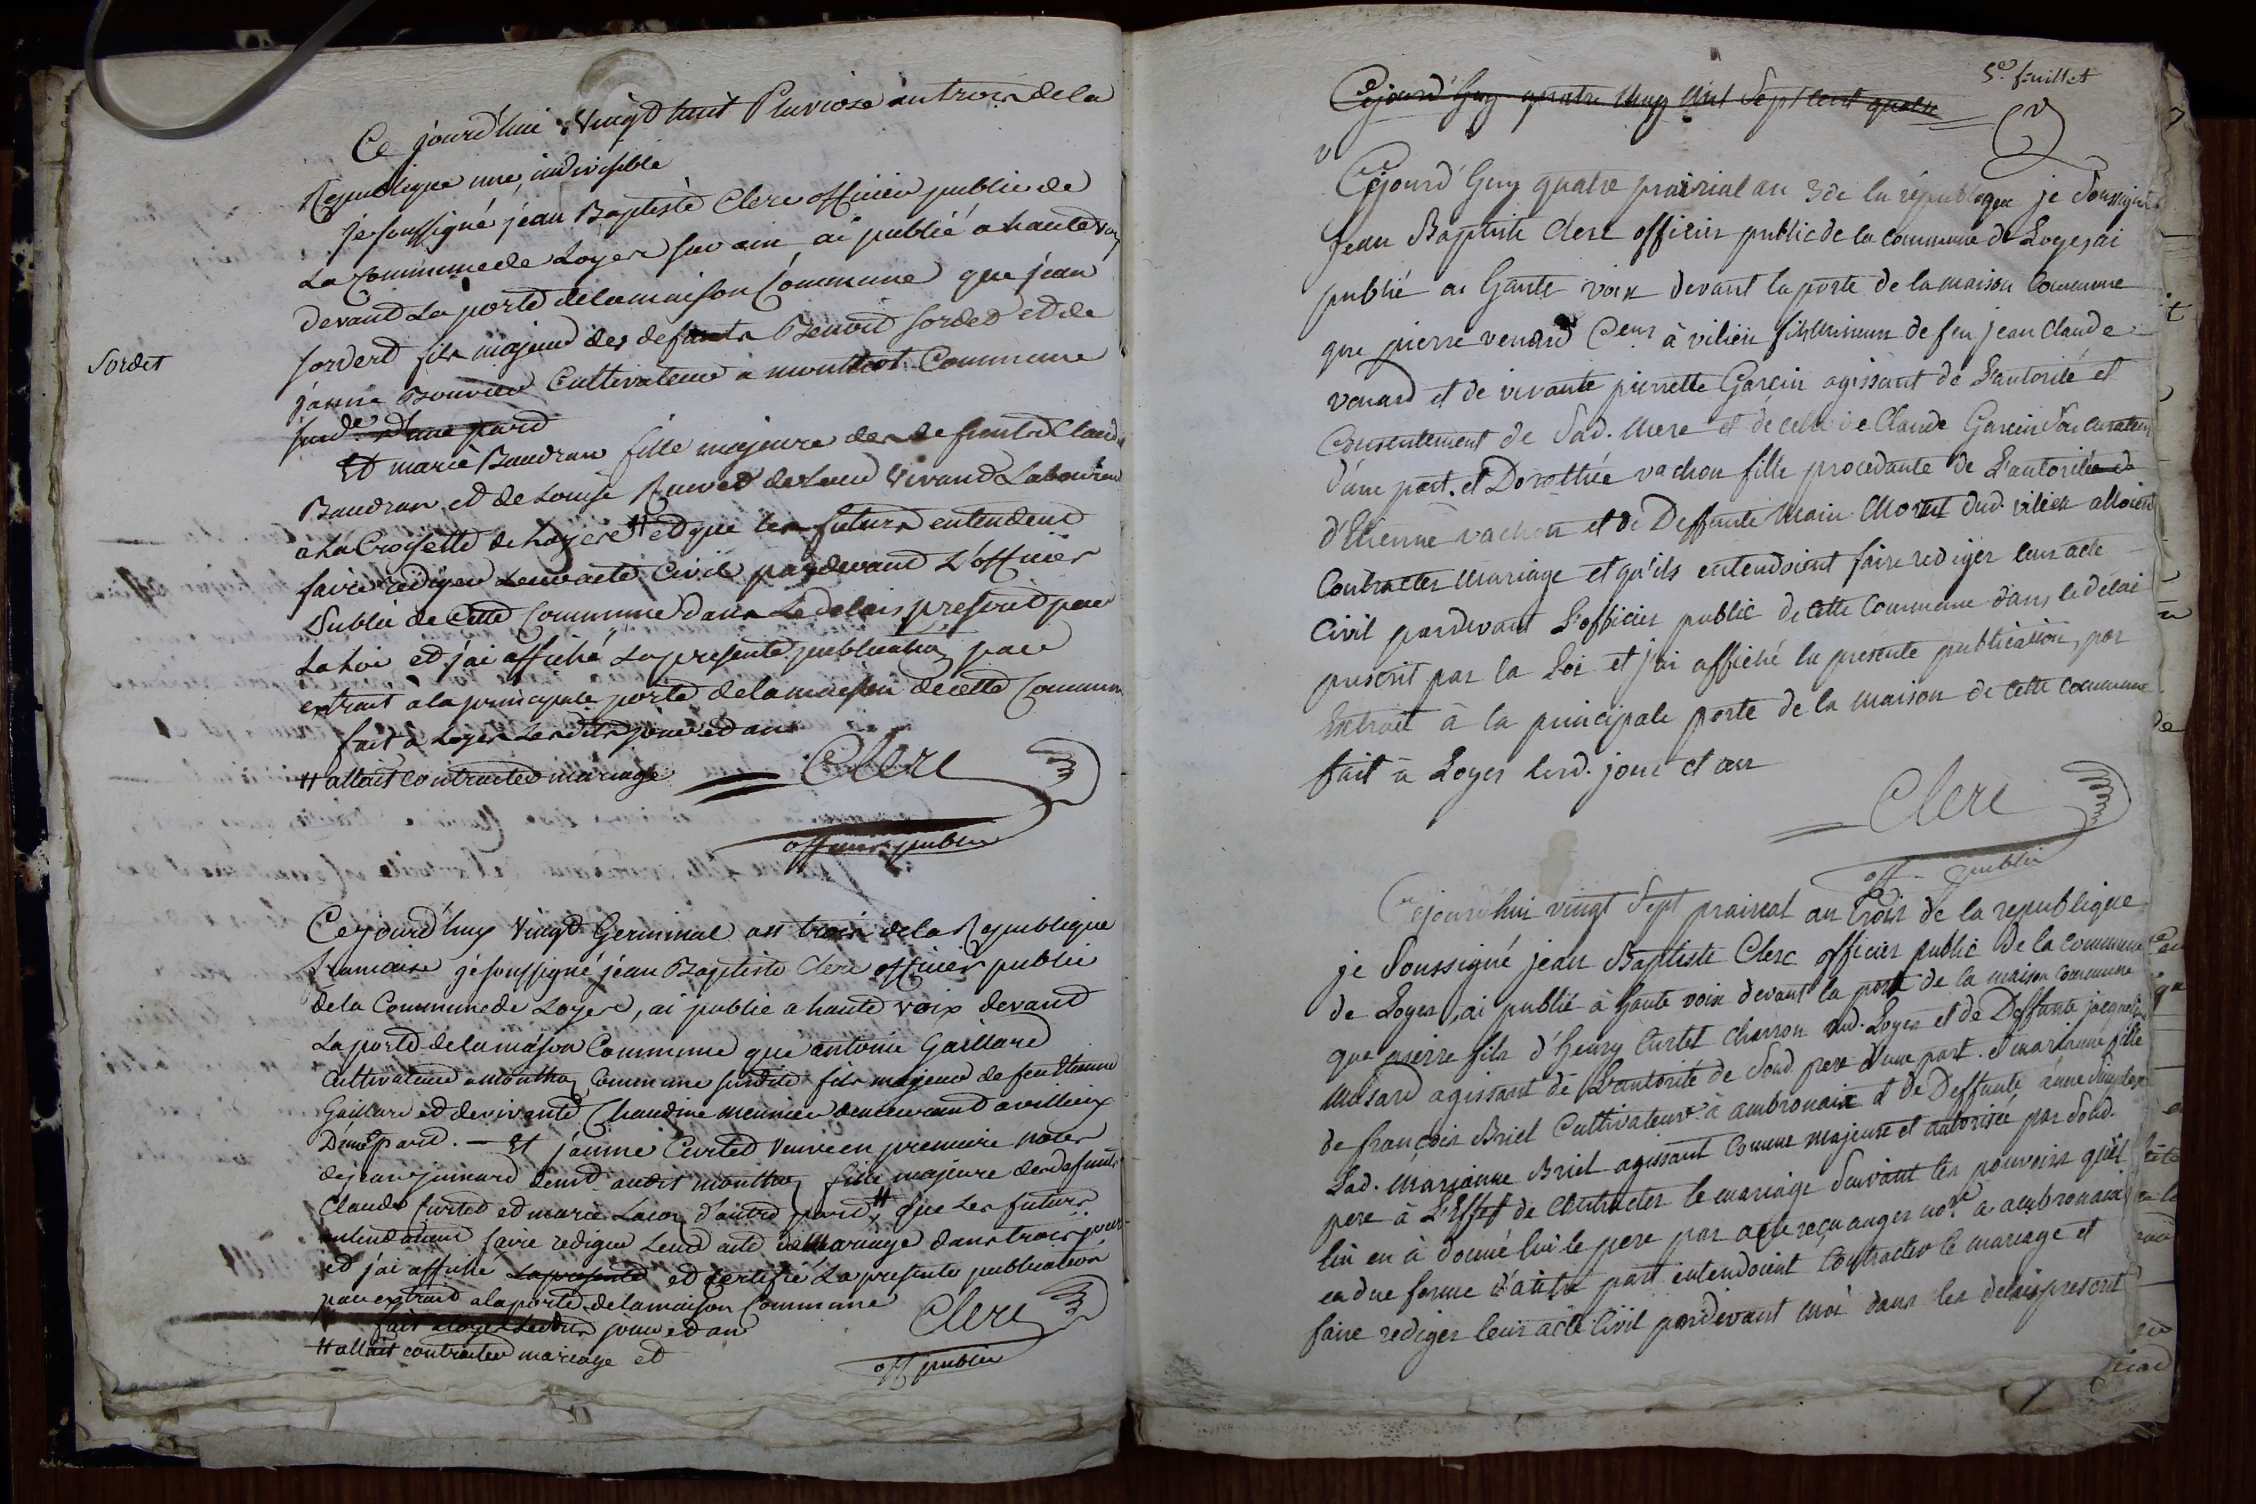 Ce jourd'hui vingt huit Pluviose an trois de la
Republique une, indivisible
je soussigné jean Baptiste Clerc officier public de
La Commune de Loyes sur ain ai publié a haute voix
devant La porte de la maison Commune que jean
Sordet
sordet fils majeur des defunts Benoit sordet et de
janne Bouvier Cultivateur a monthoz Commune
sud.e d'une part
Et marie Baudran fille majeure des defunts Claude
Baudran et de Louise de Leur vivant Laboureur
a La Croisette de Loyes # et que les futurs entendent
faire rediger Leur acte Civil pardevant L'officier
Public de Cette Commune dans Le delais prescrit par
La Loi et j'ai affiché La presente publication par
extrait a la principale porte de la maison de cette Commune
fait a Loyes Lesdits jour et an
# allait contracter mariage
Clerc
officier public
Ce jourd'huy vingt Germinal an trois de la Republique
francaise je soussigné jean Baptiste Clerc officier public
de la Commune de Loyes, ai publie a haute voix devant
La porte de la maison Commune que antoine Gaillard
Cultivateur a monthoz Commune susdite fils majeur de feu Etienne
Gaillard et de vivante Claudine meunier demeurant a villieux
D'une part. — Et janne Curtet veuve en premiere noces
de jean demt. audit monthoz fille majeure des defunts
Claude Curtet et marie Lacoz d'autre part # que Les futurs
entendaient faire rediger Leur acte de Mariage dans trois jours
et j'ai affiché La presente et certifié La presente publication
par extrait a la porte de la maison Commune
fait a Loyes Lesdits jour et an
# allait contracter mariage et
Clerc
off public
5e. feuillet
Cejourd'huy quatre may mil sept cent quatre
Cejourd'huy quatre prairial an 3 de la république je Soussigné
Jean Baptiste Clerc officier public de la commune de Loyes, ai
publié a haute voix devant la porte de la maison Commune
que pierre venard à vilieu fils mineur de feu jean Claude
venard et de vivante pierrette Garcin agissant de L'autorité et
Consentement de Sad. mere et de celui de Claude Garcin Son curateur
d'une part. et Dorothée vachon fille procedante de L'autorité de
d'Etienne vachon et de Deffunte Marie Morel dud. vilieu alloient
Contracter Mariage et qu'ils entendoient faire rediger leur acte
Civil pardevant L'officier public de Cette Commune dans le délai
prescrit par la Loi et j'ai affiché la présente publication, par
Extrait à la principale porte de la maison de cette commune
fait à Loyes lesd. jour et an
Clerc
off. public
Cejourd'hui vingt Sept prairial an trois de la republique
je Soussigné jean Baptiste Clerc officier public de la commune
de Loyes, ai publié à haute voix devant la porte de la maison commune
que pierre fils d'henry Curtet charron aud. Loyes et de Deffunte jacqueline
Musard agissant de L'autorité de Soud. pere d'une part. et marianne fille
de françois Briel Cultivateur à ambronaix et de Deffunte
Lad. marianne Briel agissant Comme majeure et autorisée par Soud.
pere à L'Effet de Contracter le mariage Suivant les pouvoirs qu'il
lui en à donné lui le pere par acte reçu auger no.re a ambronaix
en due forme d'autre part entendoient Contracter le mariage et
faire rediger leur acte Civil pardevant moi dans les delais prescrit